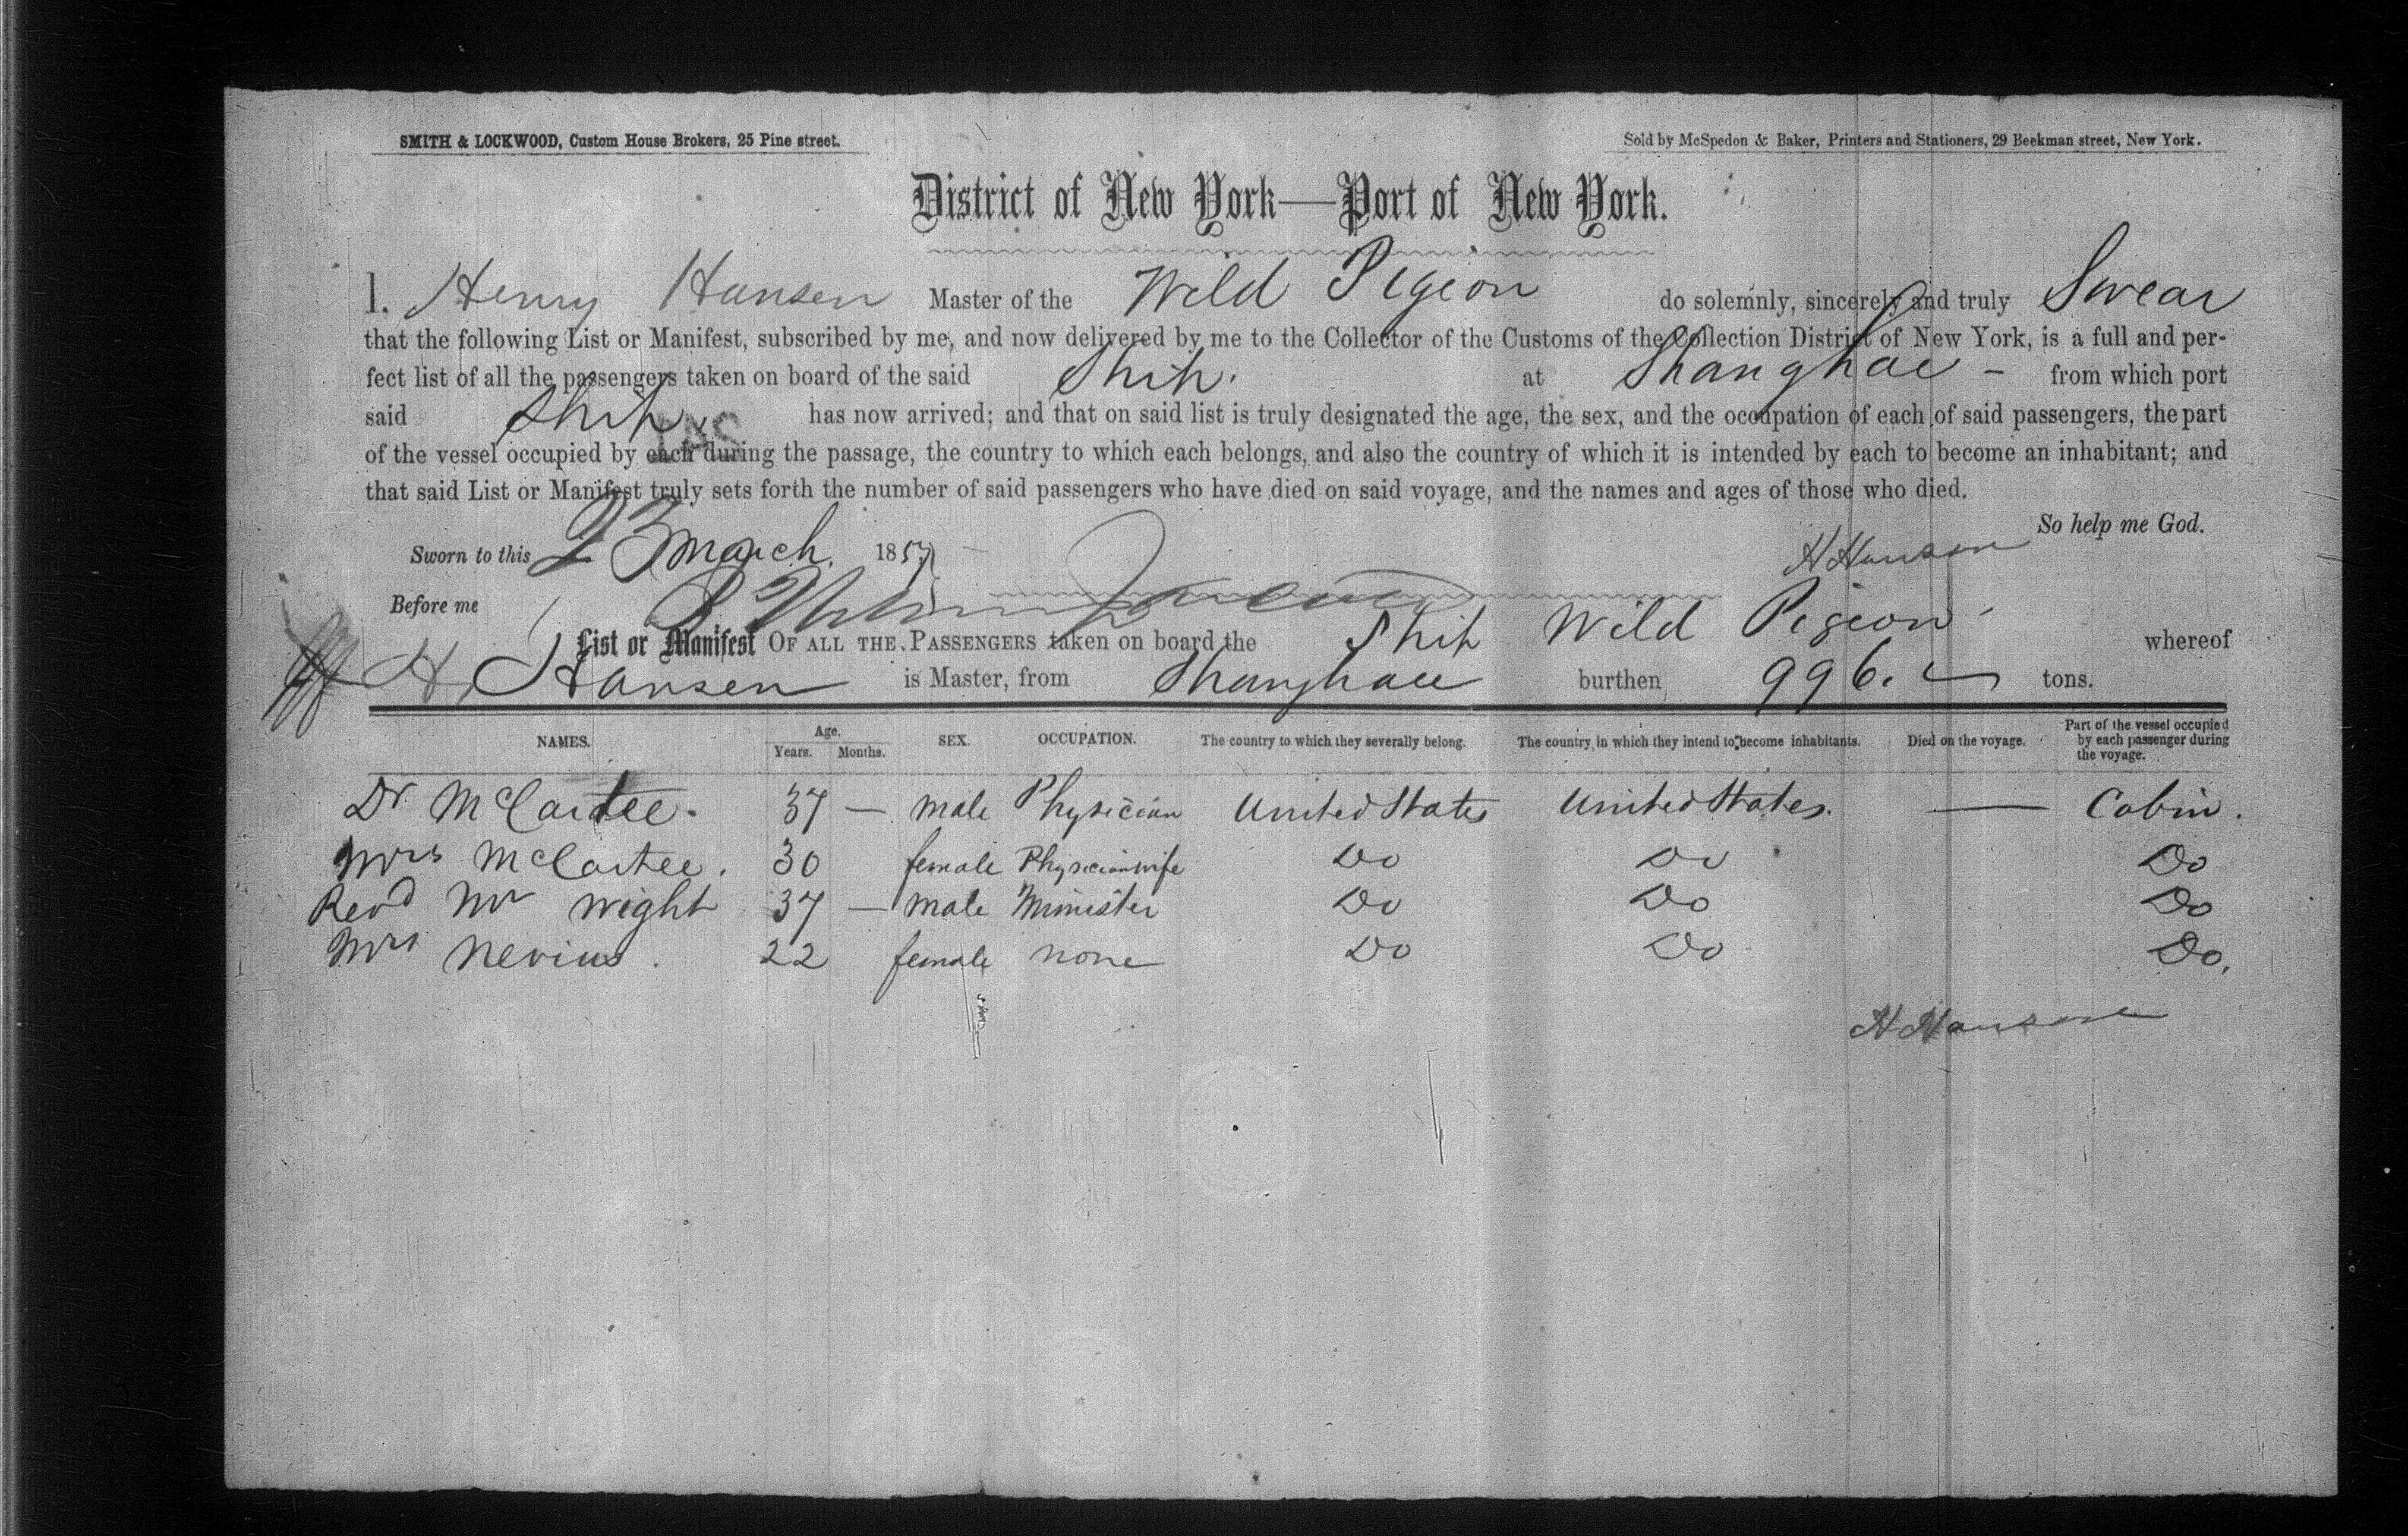 SMITH & LOCKWOOD, Custom House Brokers, 25 Pine street.
Sold by McSpedon & Baker, Printers and Stationers, 29 Beekman street, New York.
District of New York—Port of New York.
I. Henry Hansen Master of the Wild Pigeon do solemnly, sincerely and truly Swear
that the following List or Manifest, subscribed by me, and now delivered by me to the Collector of the Customs of the Collection District of New York, is a full and per-
fect list of all the passengers taken on board of the said Ship. at Shanghae - from which port
said Ship has now arrived; and that on said list is truly designated the age, the sex, and the occupation of each of said passengers, the part
of the vessel occupied by each during the passage, the country to which each belongs, and also the country of which it is intended by each to become an inhabitant; and
that said List or Manifest truly sets forth the number of said passengers who have died on said voyage, and the names and ages of those who died.
So help me God.
Sworn to this 23 March 1857 H Hansen
Before me
List or Manifest OF ALL THE PASSENGERS taken on board the Ship Wild Pigeon whereof
H. Hansen is Master, from Shanghae burthen 996. tons.
NAMES. Age. Years. Months. SEX. OCCUPATION. The country to which they severally belong. The country in which they intend to become inhabitants. Died on the voyage. Part of the vessel occupied by each passenger during the voyage.
Dr. McCartee. 37 — male Physician United States United States. — Cabin.
Mrs McCartee. 30 female Physicianwife Do Do Do
Revd Mr Wight 37 — male Minister Do Do Do
Mrs Nevius. 22 female none Do Do Do.
H Hansen